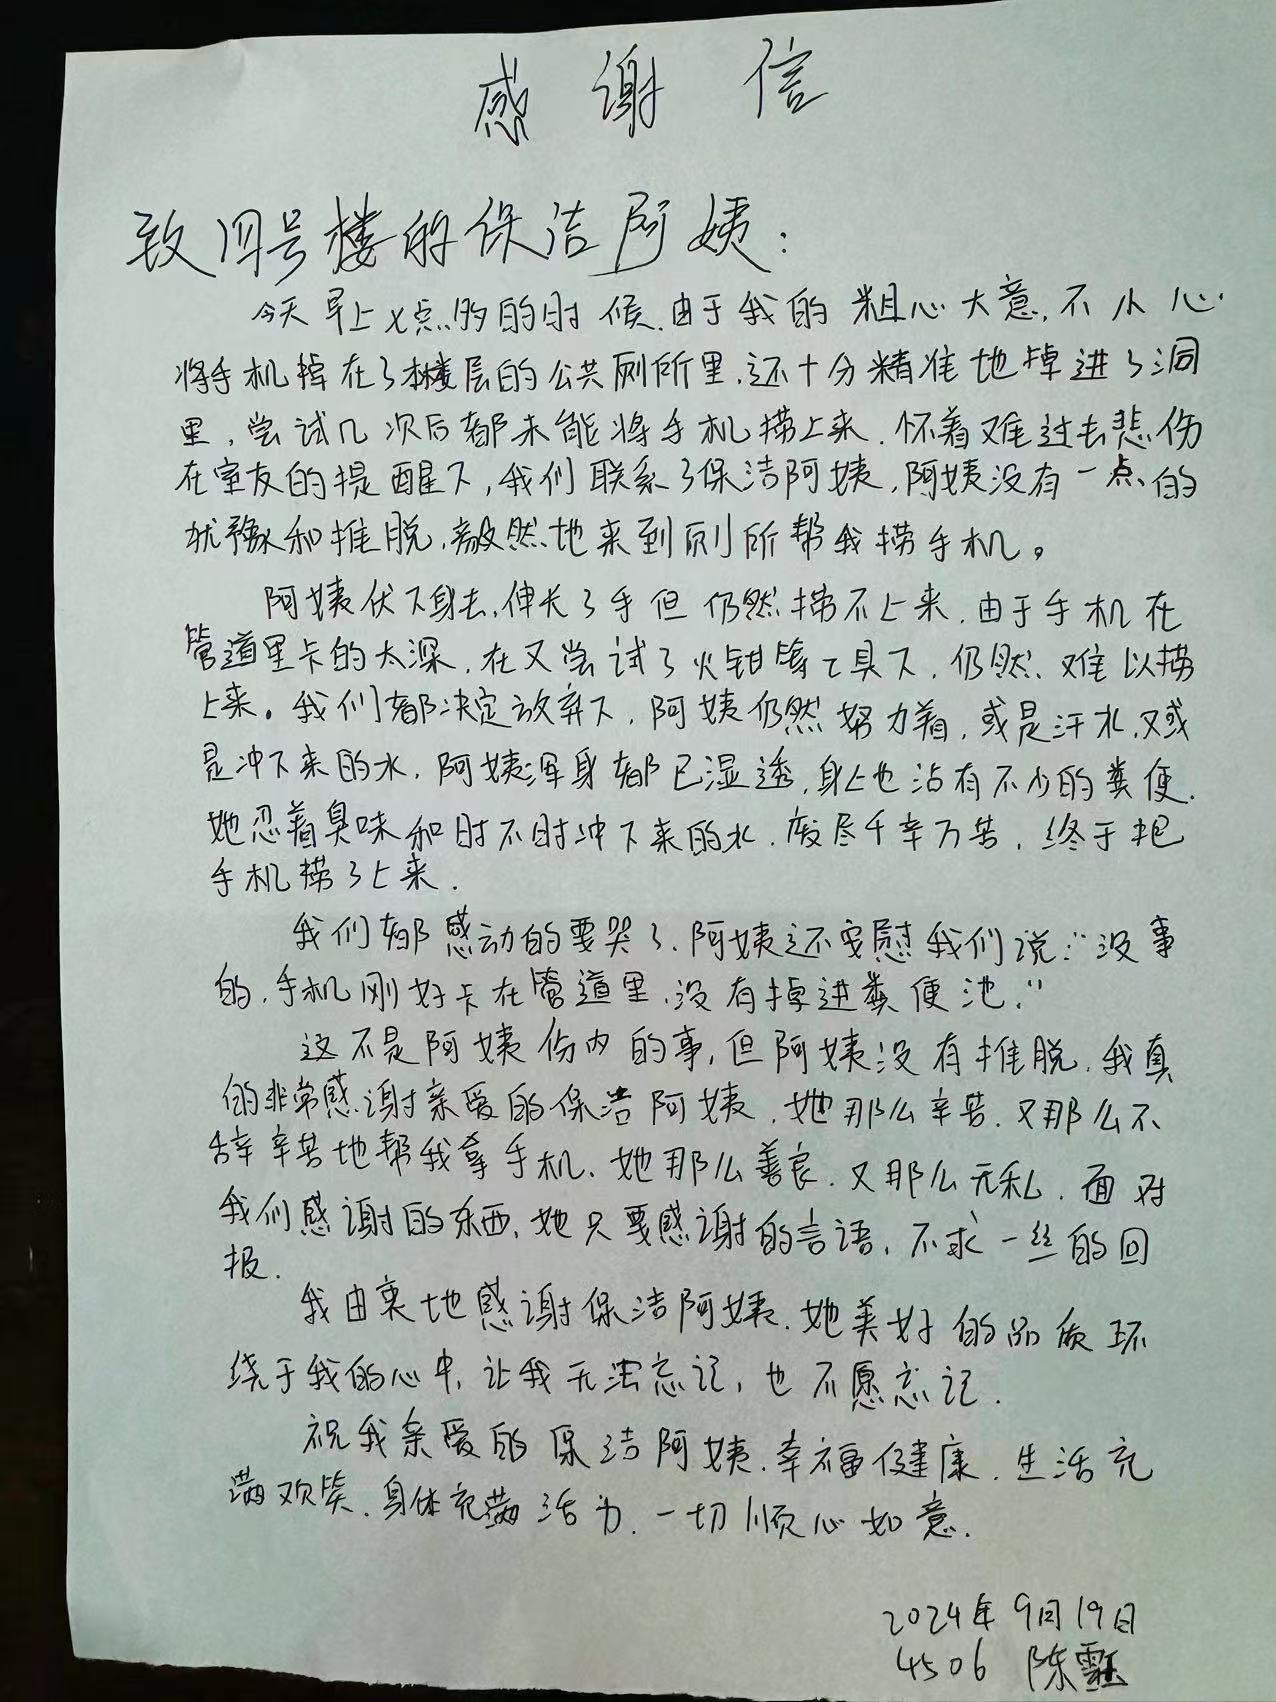 感谢信
致四号楼的保洁阿姨：
今天早上7点多的时候，由于我的粗心大意，不小心
将手机掉在了本楼层的公共厕所里，还十分精准地掉进了洞
里，尝试几次后都未能将手机捞上来，怀着难过去悲伤
在室友的提醒下，我们联系了保洁阿姨，阿姨没有一点的
犹豫和推脱，毅然地来到厕所帮我捞手机。
阿姨伏下身去，伸长了手但仍然捞不上来，由于手机在
管道里卡的太深，在又尝试了火钳等工具下，仍然难以捞
上来。我们都决定放弃下，阿姨仍然努力着，或是汗水，又或
是冲下来的水，阿姨浑身都已湿透，身上也沾有不少的粪便，
她忍着臭味和时不时冲下来的水，废尽千辛万苦，终于把
手机捞了上来。
我们都感动的要哭了，阿姨还安慰我们说：“没事
的，手机刚好卡在管道里，没有掉进粪便池。”
这不是阿姨份内的事，但阿姨没有推脱，我真
的非常感谢亲爱的保洁阿姨，她那么辛苦，又那么不
辞辛苦地帮我拿手机，她那么善良，又那么无私，面对
我们感谢的东西，她只要感谢的言语，不求一丝的回
报。
我由衷地感谢保洁阿姨，她美好的品质环
绕于我的心中，让我无法忘记，也不愿忘记。
祝我亲爱的保洁阿姨，幸福健康，生活充
满欢笑，身体充满活力，一切顺心如意。
2024年9月19日
4506 陈